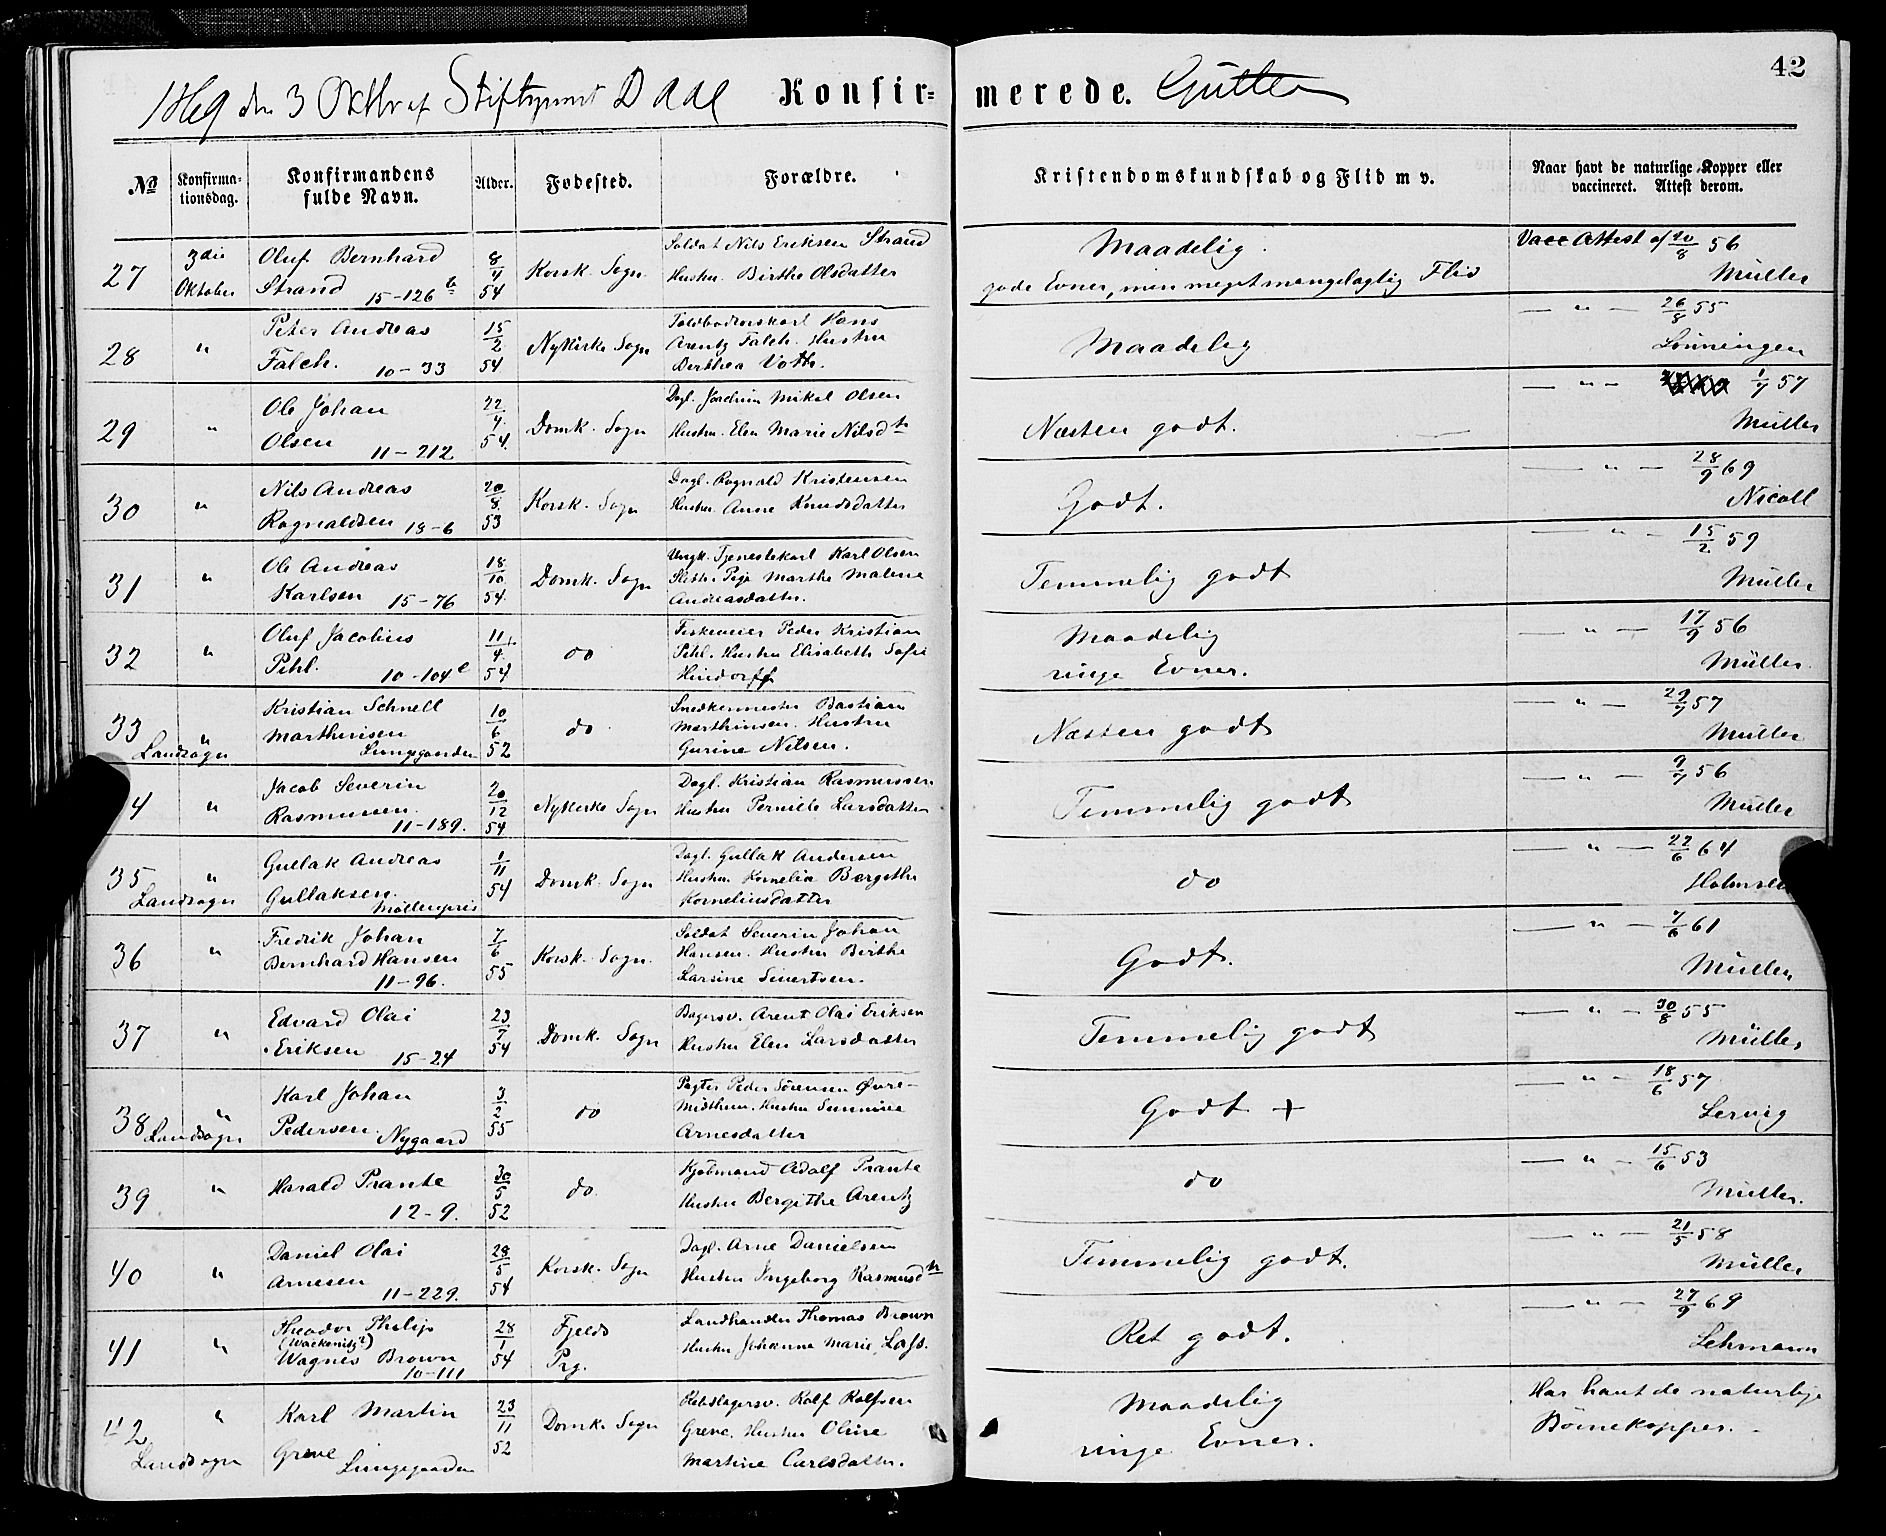 42
1869 den 3 Oktbr af Stiftsprovst D Konfir= merede. Gutter
No Konfirma- tionsdag. Konfirmandens fulde Navn. Alder. Fødested. Forældre. Kristendomskundskab og Flid m v. Naar havt de naturlige Kopper eller vaccineret. Attest derom.
27 3die Oluf Bernhard 8/4 Korsk. Sogn Soldat Nils Eriksen Strand Maadelig. Vacc Attest af 20/8 56
Oktober Strand 15-126 b 54 Hustru Birthe Olsdatter gode Evner, men meget mangelagtig Flid Müller
28 " Peter Andreas 15/2 Nykirke Sogn Toldbodenskarl Hans Maadelig — " — 26/8 55
Falch. 10-33 54 Arentz Falch. Hustru
Derthea Voth. Lönningen
29 " Ole Johan 22/4 Domk. Sogn Dagl. Joachim Mikal Olsen Næsten godt. — " — 1/7 57
Olsen 11-212 54. Hustru Elen Marie Nilsdtr Müller
30 " Nils Andreas 20/8 Korsk. Sogn Dagl. Ragnald Kristensen Godt. — " — 28/9 69
Ragnaldsen 18-6 53 Hustru Anne Knudsdatter Nicoll
31 " Ole Andreas 18/10 Domk. Sogn Ungk. Tjenestekarl Karl Olsen Temmelig godt — " — 15/2 59
Karlsen 15-76 54. Pige Marthe Malene
Andreasdatter. Müller
32 " Oluf Jacobius 11/4 do Peder Kristian Maadelig — " — 17/9 56
Pihl. 10-104 c 54 Pihl. Hustru Elisabeth Sofie ringe Evner. Müller
Hindorff
33 " Kristian Schnell 10/6 do Snedkermester Bastian Næsten godt — " — 29/7 57
Landsogn Marthinsen 52 Marthinsen. Hustru Müller
Lungegaarden Gurine Nilsen.
4 " Jacob Severin 20/12 Nykirke Sogn Dagl. Kristian Rasmussen Temmelig godt — " — 9/7 56
Rasmussen. 11-189. 54 Hustru Pernille Larsdatter Müller
35 " Gullak Andreas 1/11 Domk. Sogn Dagl. Gullak Andersen do — " — 22/6 64
Landsogn Gullaksen. 54 Hustru Kornelia Bergithe
Møllenpris Korneliusdatter
36 " Fredrik Johan 7/6 Korsk. Sogn. Soldat Severin Johan Godt. — " — 7/6 61
Bernhard Hansen 55 Hansen. Hustru Birthe Müller
11-96. Larsine Siuertsen.
37 " Edvard Olai 23/7 Domk. Sogn Bagersv. Arent Olai Eriksen Temmelig godt — " — 30/8 55
Eriksen 15-24 54 Hustru Elen Larsdatter Müller
38 " Karl Johan 3/2 do Pagter Peder Sörensen Øvre- Godt + — " — 18/6 57
Landsogn Pedersen. 55 Midthun. Hustru Sunniva Lervig
Nygaard Arnesdatter
39 " Harald Prante 30/5 do Kjöbmand Adolf Prante do — " — 15/6 53
12-9. 52 Hustru Bergithe Arentz Müller.
40 " Daniel Olai 28/5 Korsk. Sogn Dagl. Arne Danielsen Temmelig godt. — " — 21/5 58
Arnesen 11-229. 54 Hustru Ingeborg Rasmusdtr Müller
41 " Theodor Philip 28/1 Fjelds Landhandler Thomas Brown Ret godt. — " — 27/9 69
(Wackenitz?)
Wagnes Brown 54 Prg. Hustru Johanne Marie Lass. Lehmann
10-111
42 " Karl Martin 23/11 Domk. Sogn Rebslagersv. Rolf Rolfsen Maadelig Har havt de naturlige
Landsogn Greve 52 Greve. Hustru Oline ringe Evner. Börnekopper.
Lungegaarden Martine Carlsdatter.